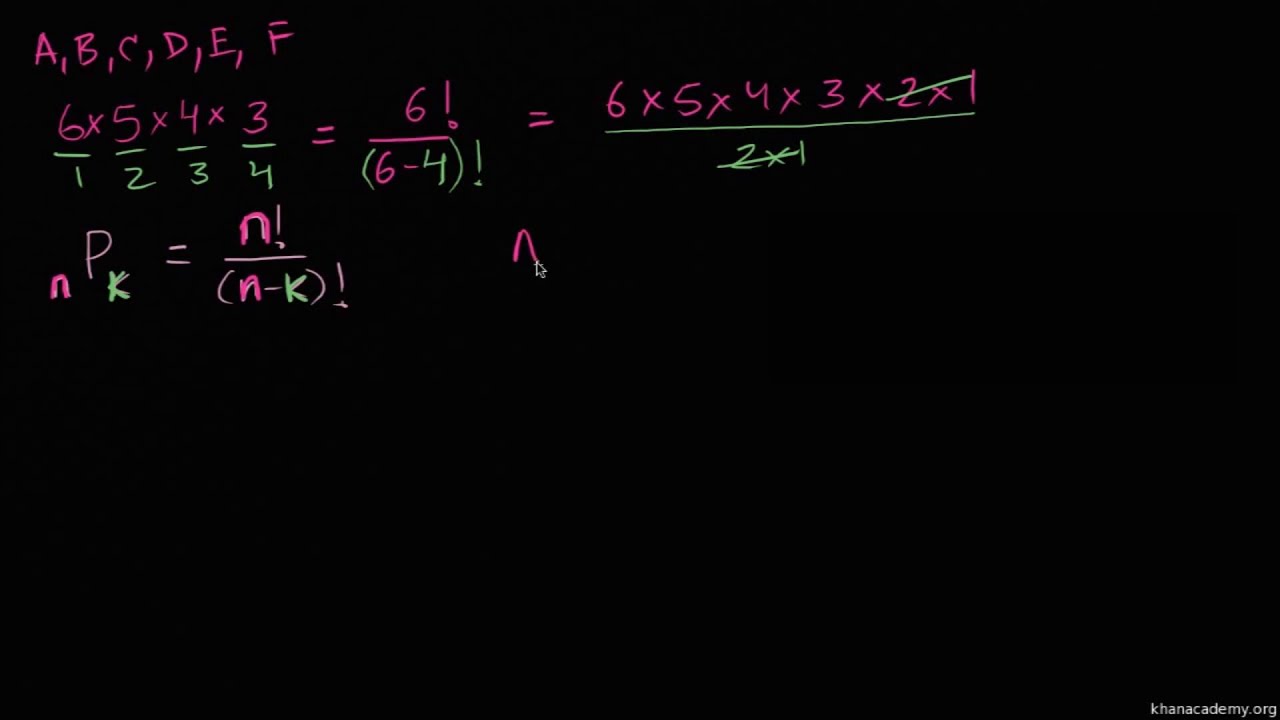 A, B, C, D, E, F
6 × 5 × 4 × 3 = 6! / (6-4)! = 6 × 5 × 4 × 3 × 2 × 1 / 2 × 1
1 2 3 4
nPk = n! / (n-k)!
n
khanacademy.org